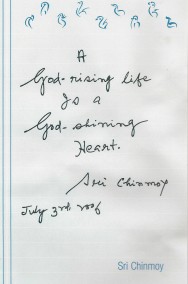 A
God-rising life
Is a
God-shining
Heart.
Sri Chinmoy
July 3rd
Sri Chinmoy